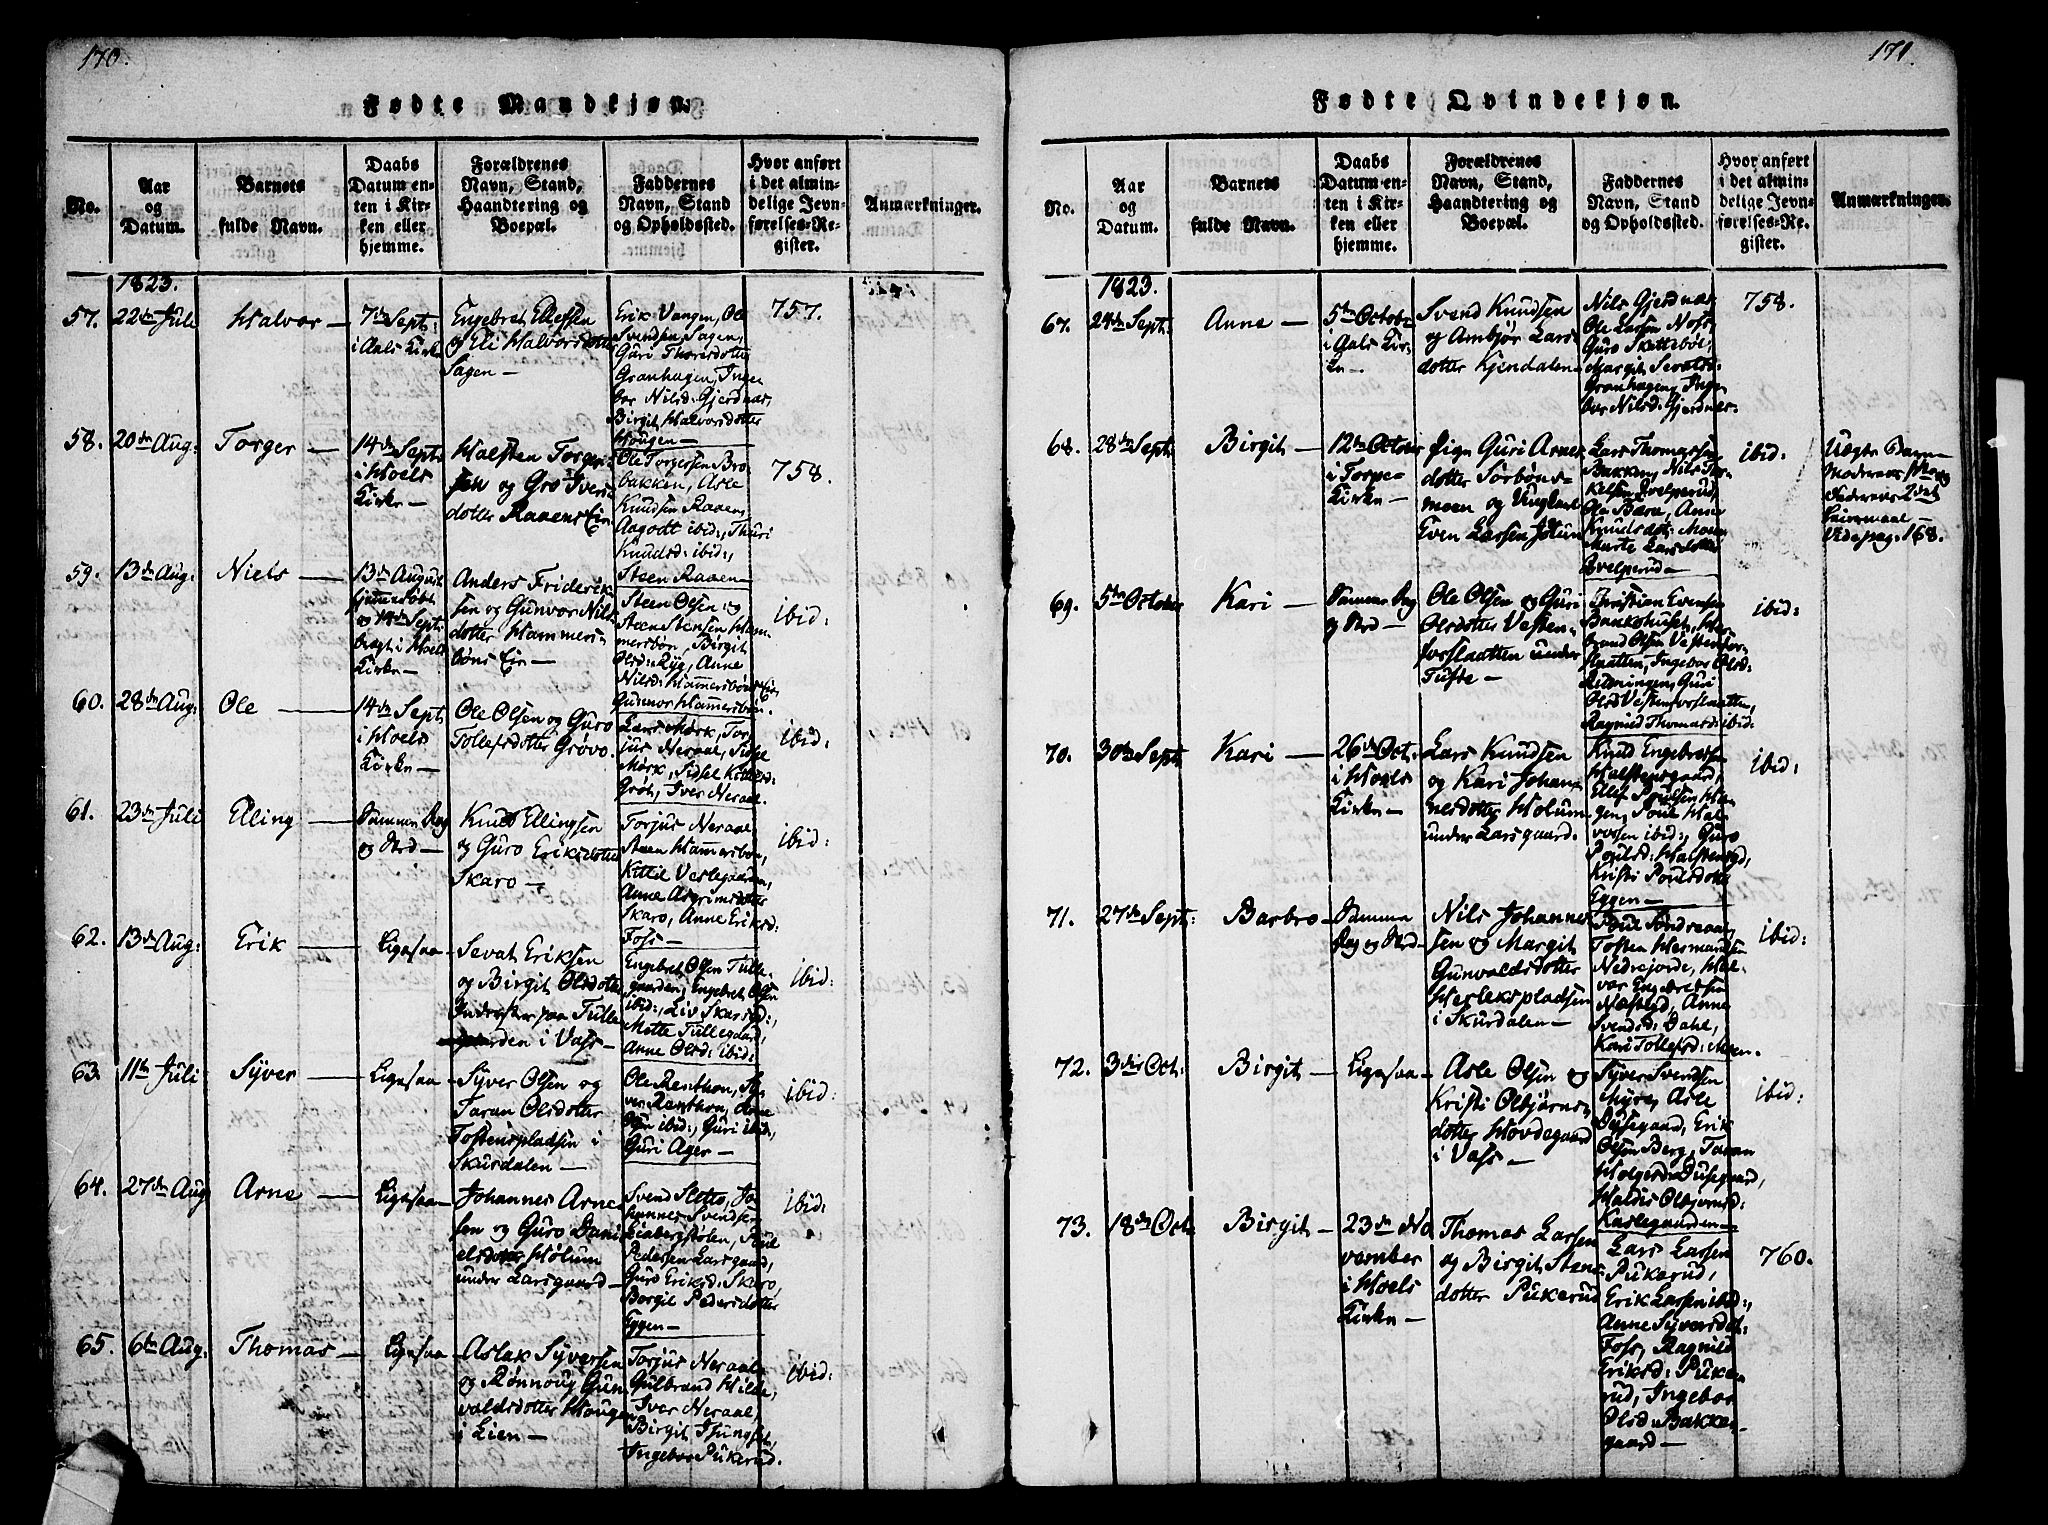 170.
Fødte Mandkjøn.
No.
Aar
og
Datum.
Barnets
fulde Navn.
Daabs
Datum en-
ten i Kir-
ken eller
hjemme.
Forældrenes
Navn, Stand,
Haandtering og
Boepæl.
Faddernes
Navn, Stand
og Opholdssted.
Hvor anført
i det almin-
delige Jevn-
førelses-Re-
gister.
Anmærkninger.
1823.
57.
22de Juli
Halvor
7de Sept:
i Aals Kirke
Engebret Ellefsen
og Eli Halvorsdotter
Sagen
Erik Vangen, Ole
Svendsen Sagen,
Guri Thoresdotter
Granhagen, Inge
bor Nilsd: Gjerdnas,
Birgit Halvorsdotter
Hougen
757.
58.
20de Aug:
Torger
14de Sept:
i Hoels
Kirke
Halsten Torger
sen og Gro Ivers
dotter Raaens Eir
Ole Torgersen Bro
bakken, Asle
Knudsen Raaen
Aagodt ibid:, Thuri
Knudsd: ibid:,
Steen Raaen
758.
59.
13de Aug:
Niels
13de August
hjemmedøbt
og 14de Sept:
bragt i Hoels
Kirke
Anders Friderik
sen og Gunvor Nils
dotter Hammers
bøns Eir
Steen Olsen og
Steen Stensen Ham
mersbøn, Birgit
Olsd: Ryg, Anne
Nilsd: Hammersbøns Eir,
Gunvor Hammersbøn.
ibid:
60.
28de Aug:
Ole
14de Sept
i Hoels
Kirke
Ole Olsen og Guro
Tollefsdotter Grøvo.
Lars Mørk, Tor
jus Neraal, Sidse
Mørk, Sidsel Kittilsd:
Grøt, Iver Neraal.
ibid:
61.
23de Juli
Elling
Samme Dag
og Sted
Knud Ellingsen
og Guro Eriksdotter
Skaro
Torjus Neraal,
Steen Hamersbøn,
Kittil Veslegaarden,
Anne Asgrimsdotter
Skaro, Anne Eriksd:
Foss
ibid:
62.
13de Aug:
Erik
Ligesaa
Sevat Eriksen
og Birgit Olsdotter
Inderster paa Tulle
gaarden i Vass
Engebret Olsen Tulle
gaarden, Engebret Olsen
ibid:, Liv Skarsgd:,
Mette Tullegaarden
Anne Olsd: ibid:
ibid:
63.
11te Juli
Syver
Ligesaa
Syver Olsen og
Taran Olsdotter
Tostenspladsen i
Skurdalen
Ole Renthon, Sy
ver Renthon, Arne
Olsen ibid:, Guri ibid:,
Guri Ager
ibid:
64.
27de Aug
Arne
Ligesaa
Johannes Arne
sen og Guro Dani
elsdotter Holum
under Larsgaard
Svend Sletto, Jo
hannes Svendsen
Leabergstølen, Poul
Pedersen Larsgaard,
Guro Eriksd: Skaro
Bergit Pedersdotter
Eggen
ibid:
65.
6te Aug:
Thomas
Ligesaa
Aslak Syversen
og Rønnoug Gun
valdsdotter Hougen
i Lien
Torjus Neraal
Gulbrand Hilde,
Iver Neraal,
Birgit Thingset,
Ingebor Pukerud.
ibid:
171.
Fødte Qvindekjøn.
No.
Aar
og
Datum.
Barnets
fulde Navn.
Daabs
Datum en-
ten i Kir-
ken eller
hjemme.
Forældrenes
Navn, Stand,
Haandtering og
Boepæl.
Faddernes
Navn, Stand
og Opholdssted.
Hvor anført
i det almin-
delige Jevn-
førelses-Re-
gister.
Anmærkninger.
1823.
67.
24de Sept:
Anne
5te Octobr
i Aals Kir-
ke
Svend Knudsen
og Ambjør Lars
dotter Kjendalen
Nils Gjerdnas,
Ole Larsen Noss,
Guro Skottebøl,
Margit Sevaldsd:
Granhagen, Inge
bor Nilsd: Gjerdnes.
758.
68.
28de Sept:
Birgit
12te October
i Torpe
Kirke
Pign Guri Arnes
dotter Sørbøns-
moen og Ungkarl
Even Larsen Jotun
Lars Thomassen
Bakken, Nils Tor
kelsen Qvelperud,
Ole Bæra, Anne
Knudsdot: Moen
Marte Larsdotter
Qvelperud
ibid:
Uægte Barn
Moderens 1ste og
Faderens 2det
Leiermaal
Vide pag: 168.
69.
5te October
Kari
Samme Dag
og Sted
Ole Olsen og Guri
Olsdotter Vesten-
forslaatten under
Tufte
Christian Evensen
Bankehuset, Hal
brand Olsen Vestenfor
Slaatten, Ingebor Olsd:
Retningen, Guri
Olsd Vestenforslaatten,
Ragnild Thomasd: ibid:
ibid:
70.
30te Sept:
Kari
26de Oct:
i Hoels
Kirke
Lars Knudsen
og Kari Johan
nesdotter Holum
under Larsgaard.
Knud Engebretsen
Halstensgaard,
Ellef Poulsen Hau
gen, Poul Hal
vorsen ibid:, Guro
Poulsd: Halstensgd,
Kristi Poulsdotter
Eggen
ibid:
71.
27de Sept:
Barbro
Samme
Dag og Sted
Nils Johannes
sen og Margit
Gunvaldsdotter
Herlekspladsen
i Skurdalen
Poul Sondreaal,
Tosten Hermandsen
Nedrejorde, Hal-
vor Engebretsen
Næstegd, Anne
Svendsd: Dahl,
Kari Tollefsd: Moen.
ibid:
72.
3die Oct:
Birgit
Ligesaa
Asle Olsen og
Kristi Olbjørns
dotter Hovdegaard
i Vass
Syver Svendsen
Myro, Asle
Dysegaard, Erik
Olsen Berg, Taran
Holgersd: Dusegaard,
Haldis Olbjørnsd:
Kaslegaarden
ibid:
73.
18de Oct
Birgit
23de No
vember
i Hoels
Kirke
Thomas Larsen
og Birgit Stens
dotter Pukerud
Lars Larsen
Pukerud,
Erik Larsen ibid:,
Anne Syversdot:
Foss, Ragnild
Eriksd: Puke
rud, Ingebor
Olsd: Bakke-
gaard
760.